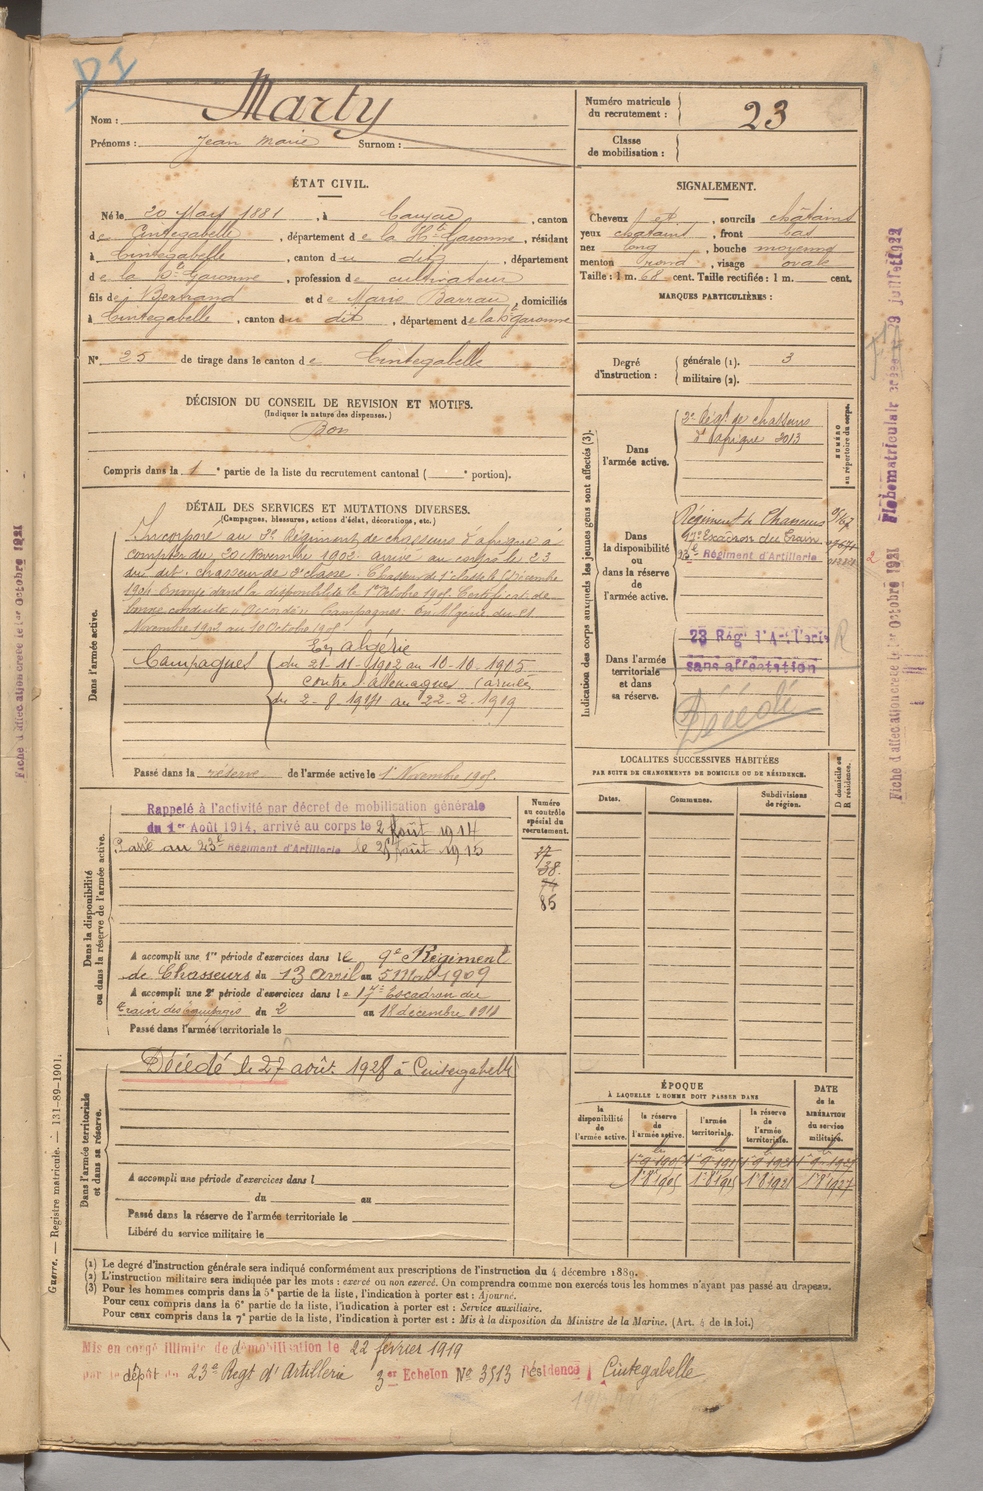 DI
Nom : Marty
Prénoms : Jean Marie Surnom :
Numéro matricule du recrutement : 23
Classe de mobilisation :
ÉTAT CIVIL.
Né le 20 Mars 1881, à Caujac, canton
de Cintegabelle, département de la Hte Garonne, résidant
à Cintegabelle, canton du dit, département
de la Hte Garonne, profession de cultivateur
fils de Bertrand et de Marie Barrau, domiciliés
à Cintegabelle, canton du dit, département de la Hte Garonne
N° 25 de tirage dans le canton de Cintegabelle
SIGNALEMENT.
Cheveux et, sourcils châtains
yeux châtains, front bas
nez long, bouche moyenne
menton rond, visage ovale
Taille : 1 m. 68 cent. Taille rectifiée : 1 m. cent.
MARQUES PARTICULIÈRES :
Degré d'instruction : générale (1). 3
militaire (2).
DÉCISION DU CONSEIL DE REVISION ET MOTIFS.
(Indiquer la nature des dispenses.)
Bon
Compris dans la 1e partie de la liste du recrutement cantonal ( e portion).
DÉTAIL DES SERVICES ET MUTATIONS DIVERSES.
(Campagnes, blessures, actions d'éclat, décorations, etc.)
Dans l'armée active.
Incorporé au Régiment de chasseurs d'afrique à
compter du 20 Novembre 1902. Arrivé au corps le 23
du dit. chasseur de 2e classe. Chasseur de 1e classe le Décembre
1904. Envoyé dans la disponibilité le 1er Octobre 1905. Certificat de
bonne conduite "Accordé". Campagnes. En Algérie du 21
Novembre 1902 au 10 Octobre 1905.
En algérie
Campagnes du 21-11-1902 au 10-10-1905
contre l'allemagne
du 2-8-1914 au 22-2-1919
Passé dans la réserve de l'armée active le 1er Novembre 1905
Indication des corps auxquels les jeunes gens sont affectés (3).
NUMÉRO au répertoire du corps.
Dans l'armée active.
2e Régt de chasseurs
d'afrique 2013
Dans la disponibilité ou dans la réserve de l'armée active.
Régiment de Chasseurs
17e Escadron du Train
23e Régiment d'Artillerie
Dans l'armée territoriale et dans sa réserve.
23 Rég' d'Artillerie R
sans affectation
Décédé
Dans la disponibilité ou dans la réserve de l'armée active.
Rappelé à l'activité par décret de mobilisation générale
du 1er Août 1914, arrivé au corps le 2 Août 1914
Passé au 23e Régiment d'Artillerie le Août 1915
Numéro au contrôle spécial du recrutement.
38
74
85
A accompli une 1re période d'exercices dans le 9e Régiment
de Chasseurs du 13 Avril au 5 Mai 1909
A accompli une 2e période d'exercices dans le 17e Escadron du
train des équipages du 2 au 18 décembre 1911
Passé dans l'armée territoriale le
LOCALITÉS SUCCESSIVES HABITÉES
PAR SUITE DE CHANGEMENTS DE DOMICILE OU DE RÉSIDENCE.
Dates. Communes. Subdivisions de région. D domicile ou R résidence.
Dans l'armée territoriale et dans sa réserve.
Décédé le 27 août 1928 à Cintegabelle
A accompli une période d'exercices dans l
du au
Passé dans la réserve de l'armée territoriale le
Libéré du service militaire le
ÉPOQUE
À LAQUELLE L'HOMME DOIT PASSER DANS
DATE de la LIBÉRATION du service militaire.
la disponibilité de l'armée active. la réserve de l'armée active. l'armée territoriale. la réserve de l'armée territoriale.
(1) Le degré d'instruction générale sera indiqué conformément aux prescriptions de l'instruction du 4 décembre 1889.
(2) L'instruction militaire sera indiquée par les mots : exercé ou non exercé. On comprendra comme non exercés tous les hommes n'ayant pas passé au drapeau.
(3) Pour les hommes compris dans la 5e partie de la liste, l'indication à porter est : Ajourné.
Pour ceux compris dans la 6e partie de la liste, l'indication à porter est : Service auxiliaire.
Pour ceux compris dans la 7e partie de la liste, l'indication à porter est : Mis à la disposition du Ministre de la Marine. (Art. 4 de la loi.)
Mis en congé illimité de démobilisation le 22 février 1919
par le dépôt du 23e Regt d'Artillerie 3er Echelon N° 3513 Résidence Cintegabelle
Guerre. — Registre matricule. — 131-89-1901.
Fiche d'affectation créée le 1er Octobre 1921
Fiche d'affectation créée le 1er Octobre 1921
Fiche matriculaire créée le 29 juillet 1922